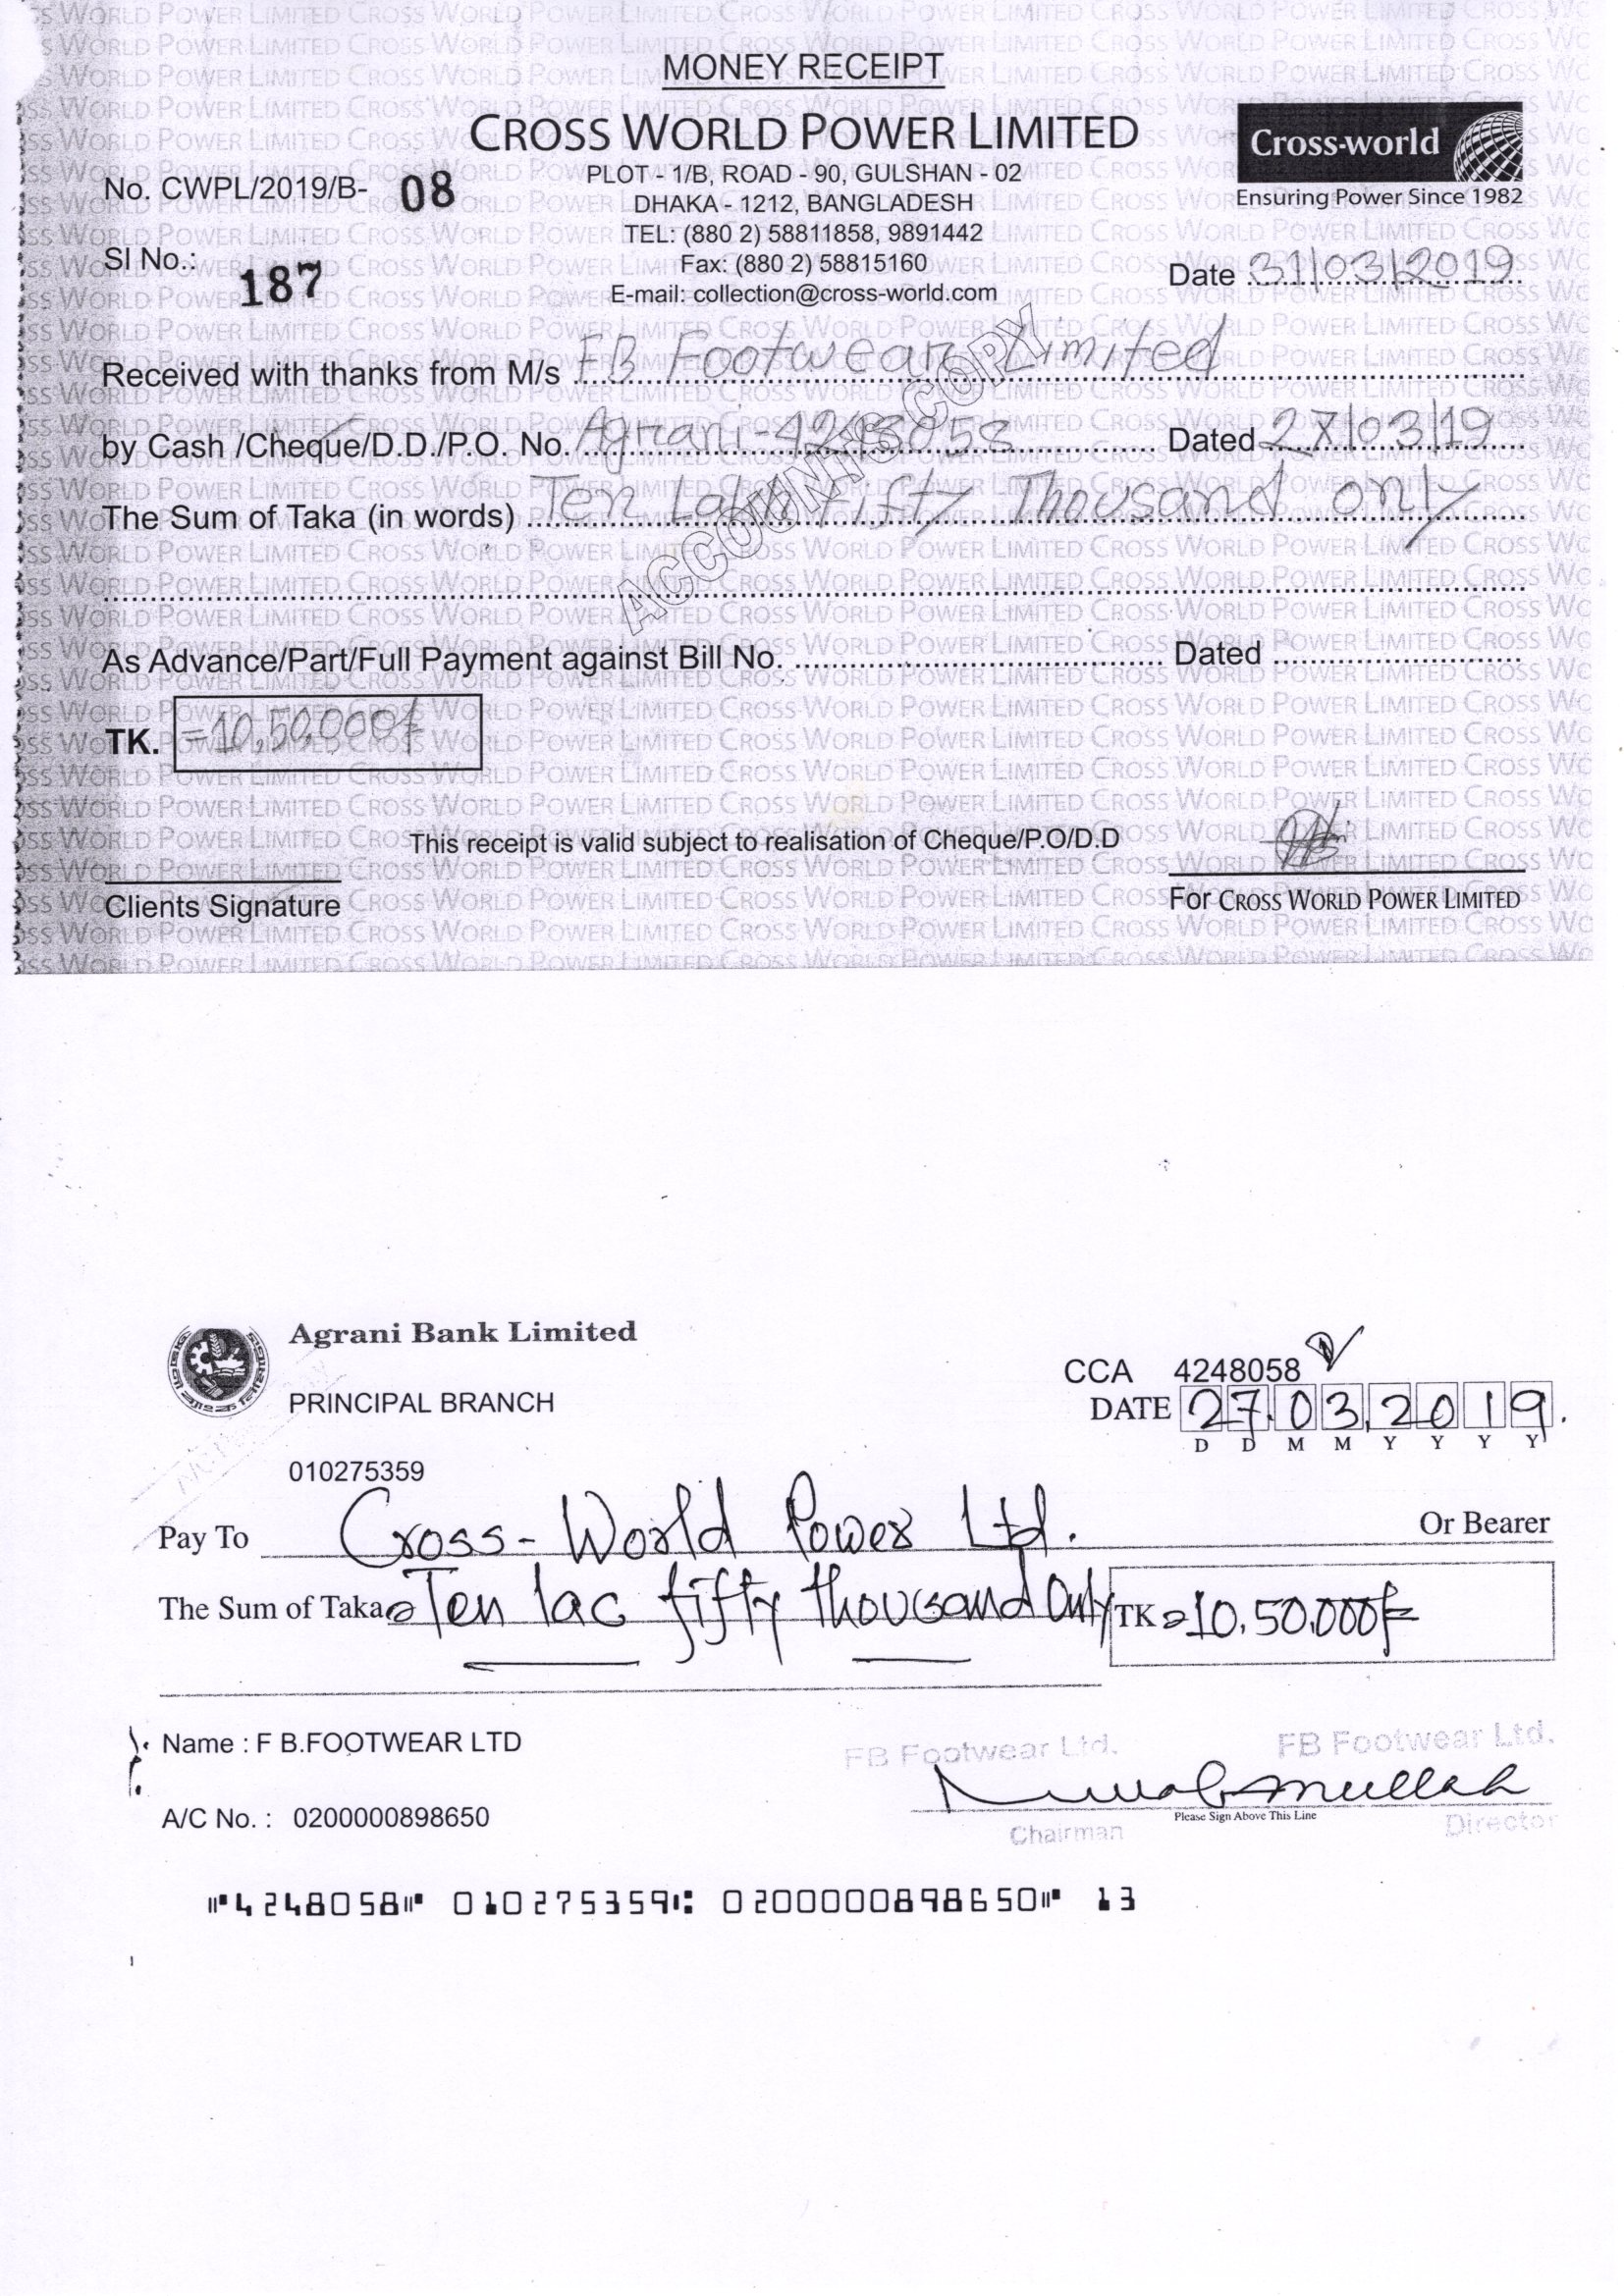 MONEY RECEIPT
CROSS WORLD POWER LIMITED
Cross-world
Ensuring Power Since 1982
PLOT - 1/B, ROAD - 90, GULSHAN - 02
No. CWPL/2019/B- 08
DHAKA - 1212, BANGLADESH
TEL: (880 2) 58811858, 9891442
SI No.: 187
Fax: (880 2) 58815160
Date 31/03/2019
E-mail: collection@cross-world.com
Received with thanks from M/s FB Footwear Limited
by Cash /Cheque/D.D./P.O. No. Agrani-4248058 Dated 27/03/19
The Sum of Taka (in words) Ten Lakh Fifty Thousand only
ACCOUNTS COPY
As Advance/Part/Full Payment against Bill No. Dated
TK. =10,50,000/=
This receipt is valid subject to realisation of Cheque/P.O/D.D
Clients Signature
For CROSS WORLD POWER LIMITED
Agrani Bank Limited
CCA 4248058
PRINCIPAL BRANCH
DATE 27.03.2019.
D D M M Y Y Y Y
010275359
Pay To Cross-World Power Ltd. Or Bearer
The Sum of Taka = Ten lac fifty thousand Only TK =10,50,000/=
Name : F B.FOOTWEAR LTD
FB Footwear Ltd. FB Footwear Ltd.
A/C No. : 0200000898650
Please Sign Above This Line
Chairman Director
⑈4248058⑈ 010275359⑆ 0200000898650⑈ 13